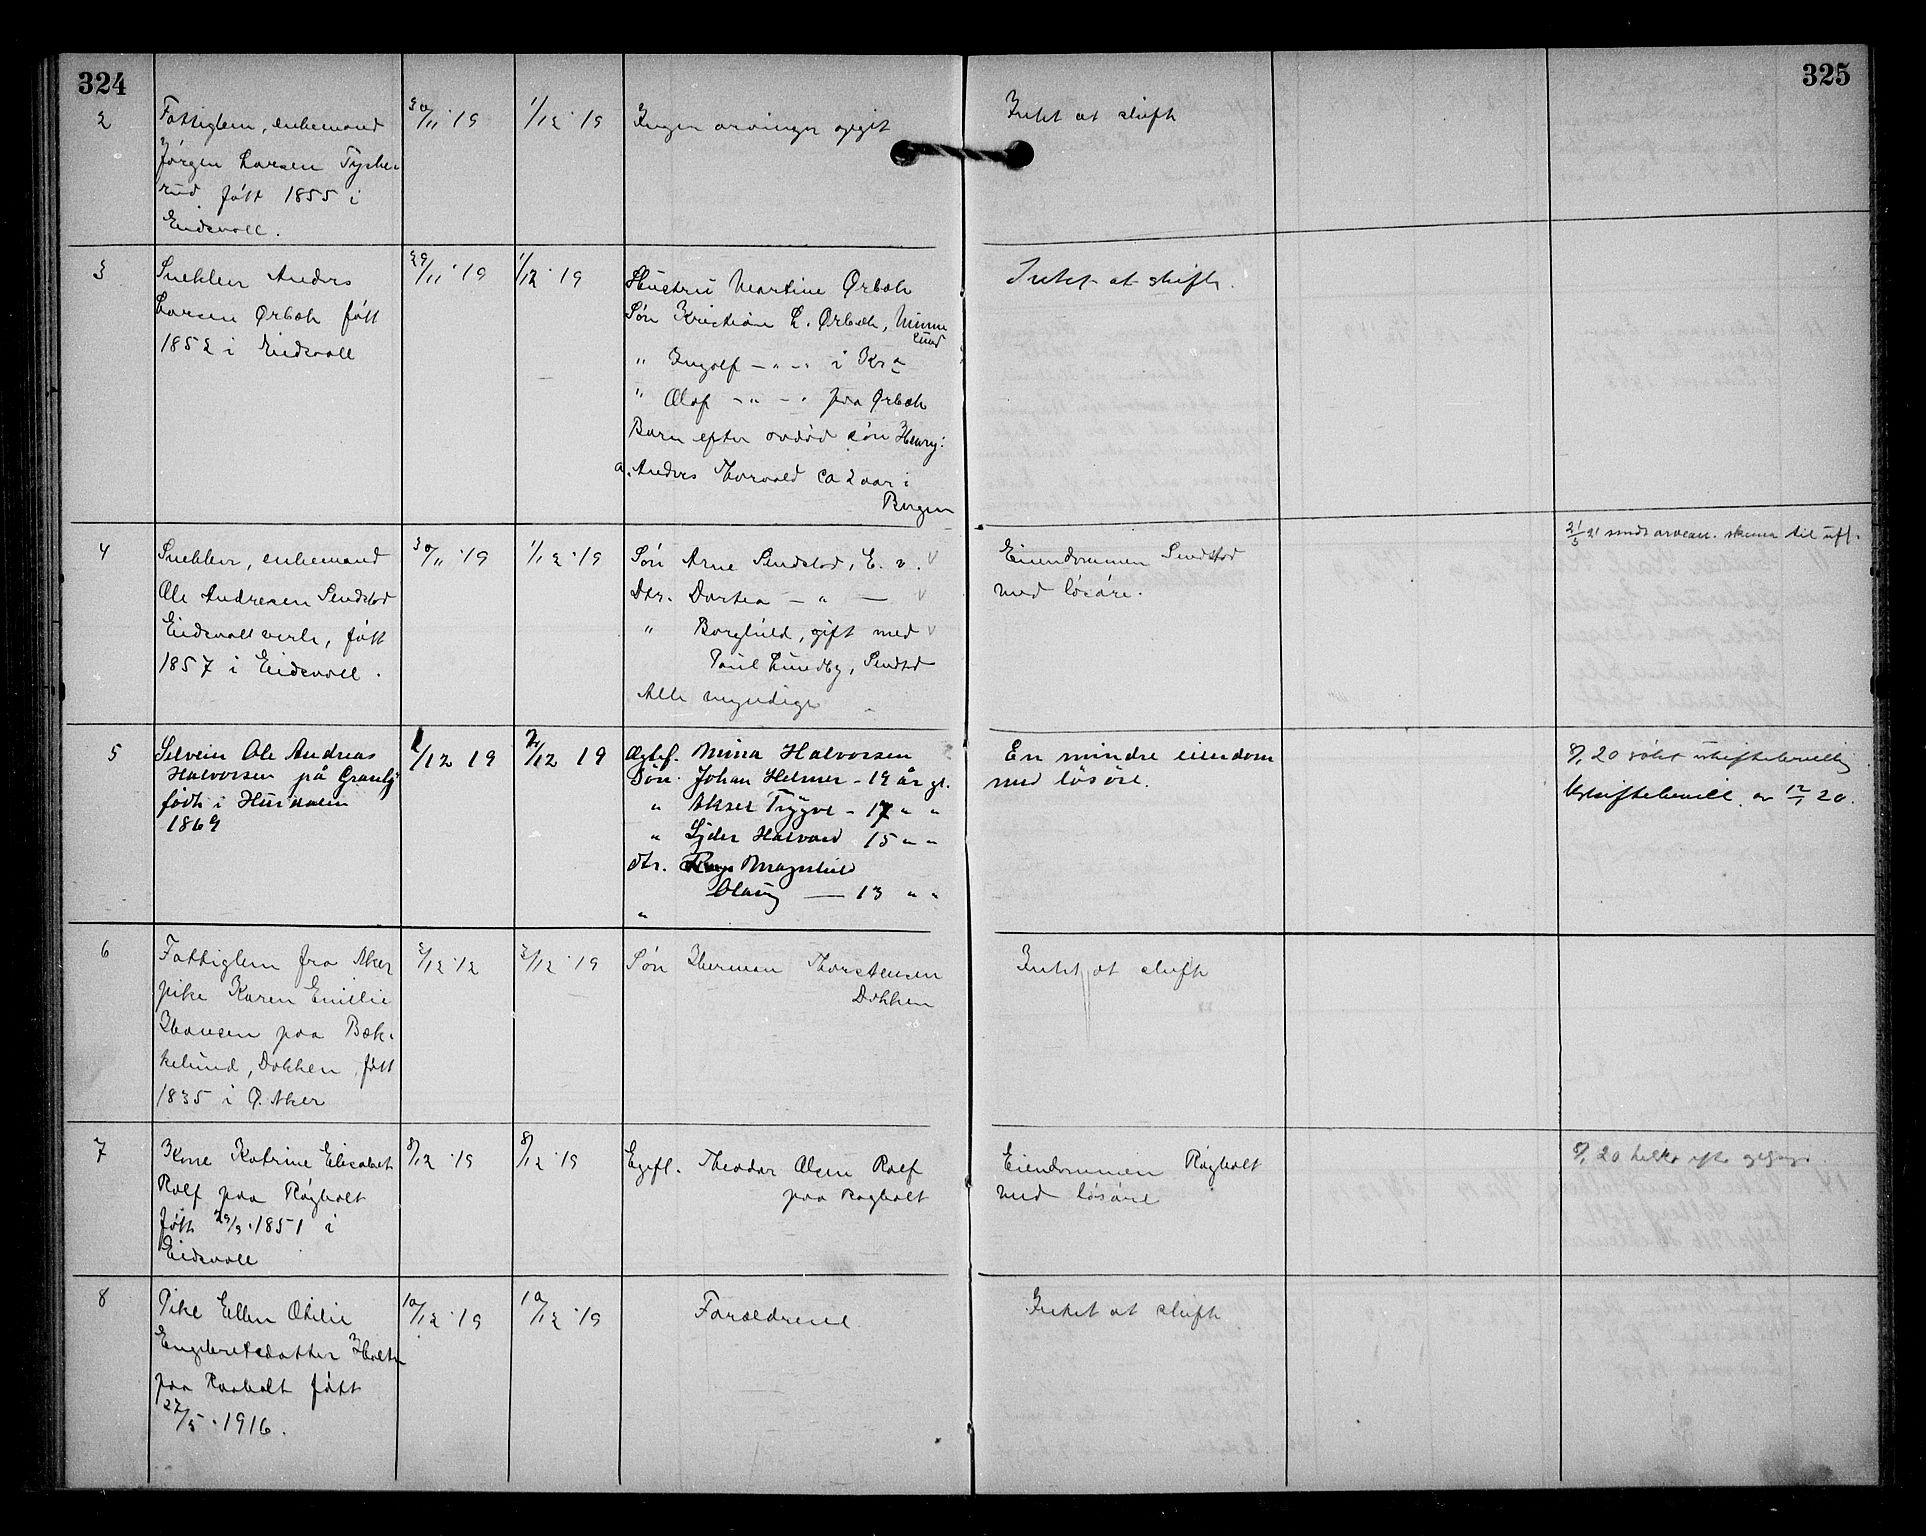 324
325
2
Fattiglem, enkemand
Jörgen Larsen Tyske-
rud, fött 1855 i
Eidsvoll.
30/11·19
1/12·19
Ingen arvinger opgit
Intet at skifte
3
Snekker Anders
Larsen Ørbæk fött
1852 i Eidsvoll
29/11·19
1/12·19
Hustru Martine Ørbæk
Sön Kristian L. Ørbæk, Minne
sund
" Ingolf — " — i Kr a
" Olaf — " — paa Ørbæk
Barn efter avdöd sön Henry:
a. Anders Thorvald ca 2 aar i
Bergen
Intet at skifte.
4
Snekker, enkemand
Ole Andresen Sendstad
Eidsvollverk, fött
1857 i Eidsvoll.
30/11·19
1/12·19
Sön Arne Sendstad, E. v. v
Dtr. Dortea — " — v
" Borghild, gift med v
Paul Lundby, Sendstd
Alle myndige
Eiendommen Sendstad
med lösöre.
21/5 21 sendt arveav. skema til utf.
5
Selveier Ole Andreas
Halvorsen på Granly
födt i Hurdalen
1869
1/12 19
2/12 19
Ægtef. Mina Halvorsen
Sön. Johan Helmer - 19 år gl.
" Aksel Trygve - 17 " "
" Lyder Halvard 15 " "
dtr. Magnhild
Olaug — 13 " "
"
En mindre eiendom
med lösöre.
9/1 20 sökt uskiftebevilling
Uskiftebevill. av 12/1 20.
6
Fattiglem fra Aker
pike Karen Emilie
Hansen paa Bæk-
kelund, Dokken, fött
1835 i Ø. Aker
3/12·12
3/12·19
Sön Herman Thorstensen
Dokken
Intet at skifte
7
Kone Katrine Elisabet
Rolf paa Rågholt
fött 29/9·1851 i
Eidsvoll
8/12·19
8/12·19
Egtfl. Theodor Olsen Rolf
paa Ragholt
Eiendommen Rågholt
med lösöre
9/1 20
8
Pike Ellen Otilie
Engebretsdatter Holter
paa Raaholt fött
27/5·1916.
10/12·19
10/12·19
Forældrene
Intet at skifte